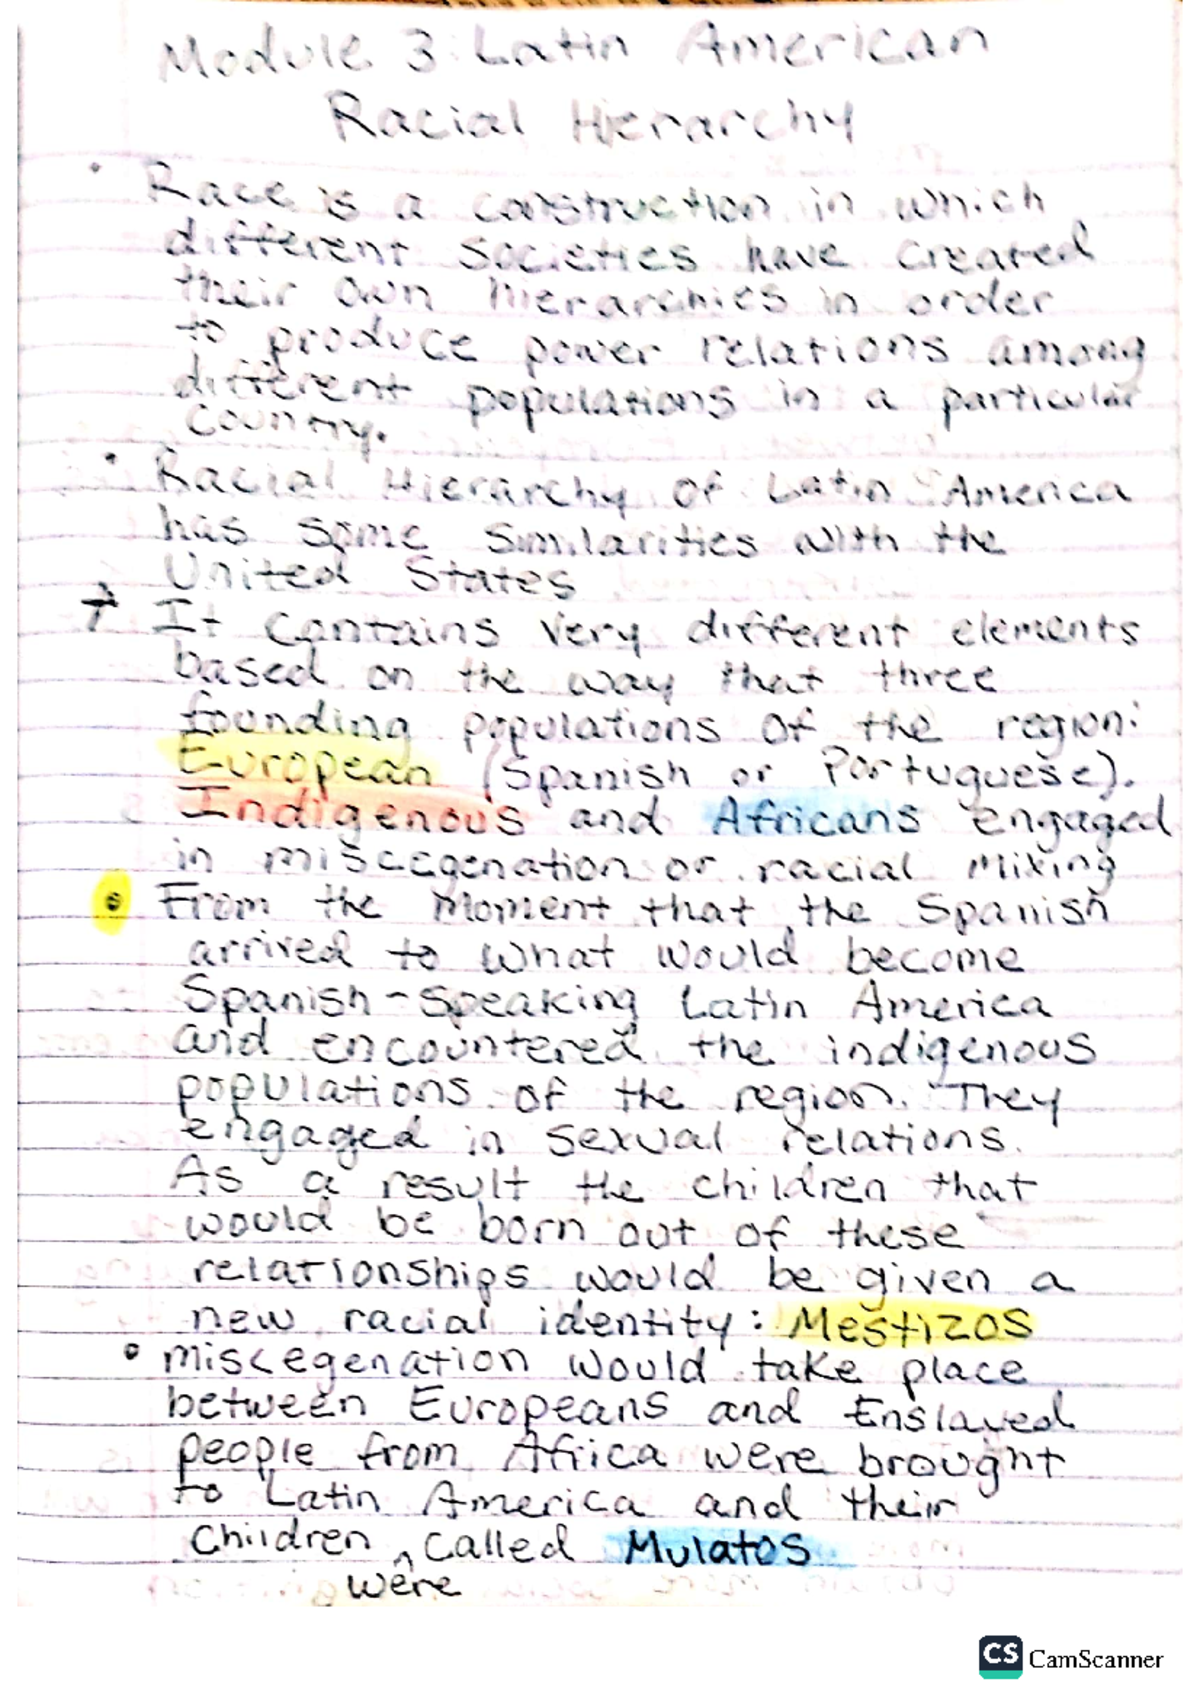 Module 3: Latin American
Racial Hierarchy
• Race is a construction in which
different societies have created
their own hierarchies in order
to produce power relations among
different populations in a particular
country.
• Racial Hierarchy of Latin America
has some similarities with the
United States
→ It contains very different elements
based on the way that three
founding populations of the region:
European (Spanish or Portuguese).
Indigenous and Africans engaged
in miscegenation or racial mixing
• From the moment that the Spanish
arrived to what would become
Spanish-speaking Latin America
and encountered the indigenous
populations of the region. They
engaged in sexual relations.
As a result the children that
would be born out of these
relationships would be given a
new racial identity: Mestizos
• miscegenation would take place
between Europeans and Enslaved
people from Africa were brought
to Latin America and their
Children ^ called Mulatos
were
CS CamScanner